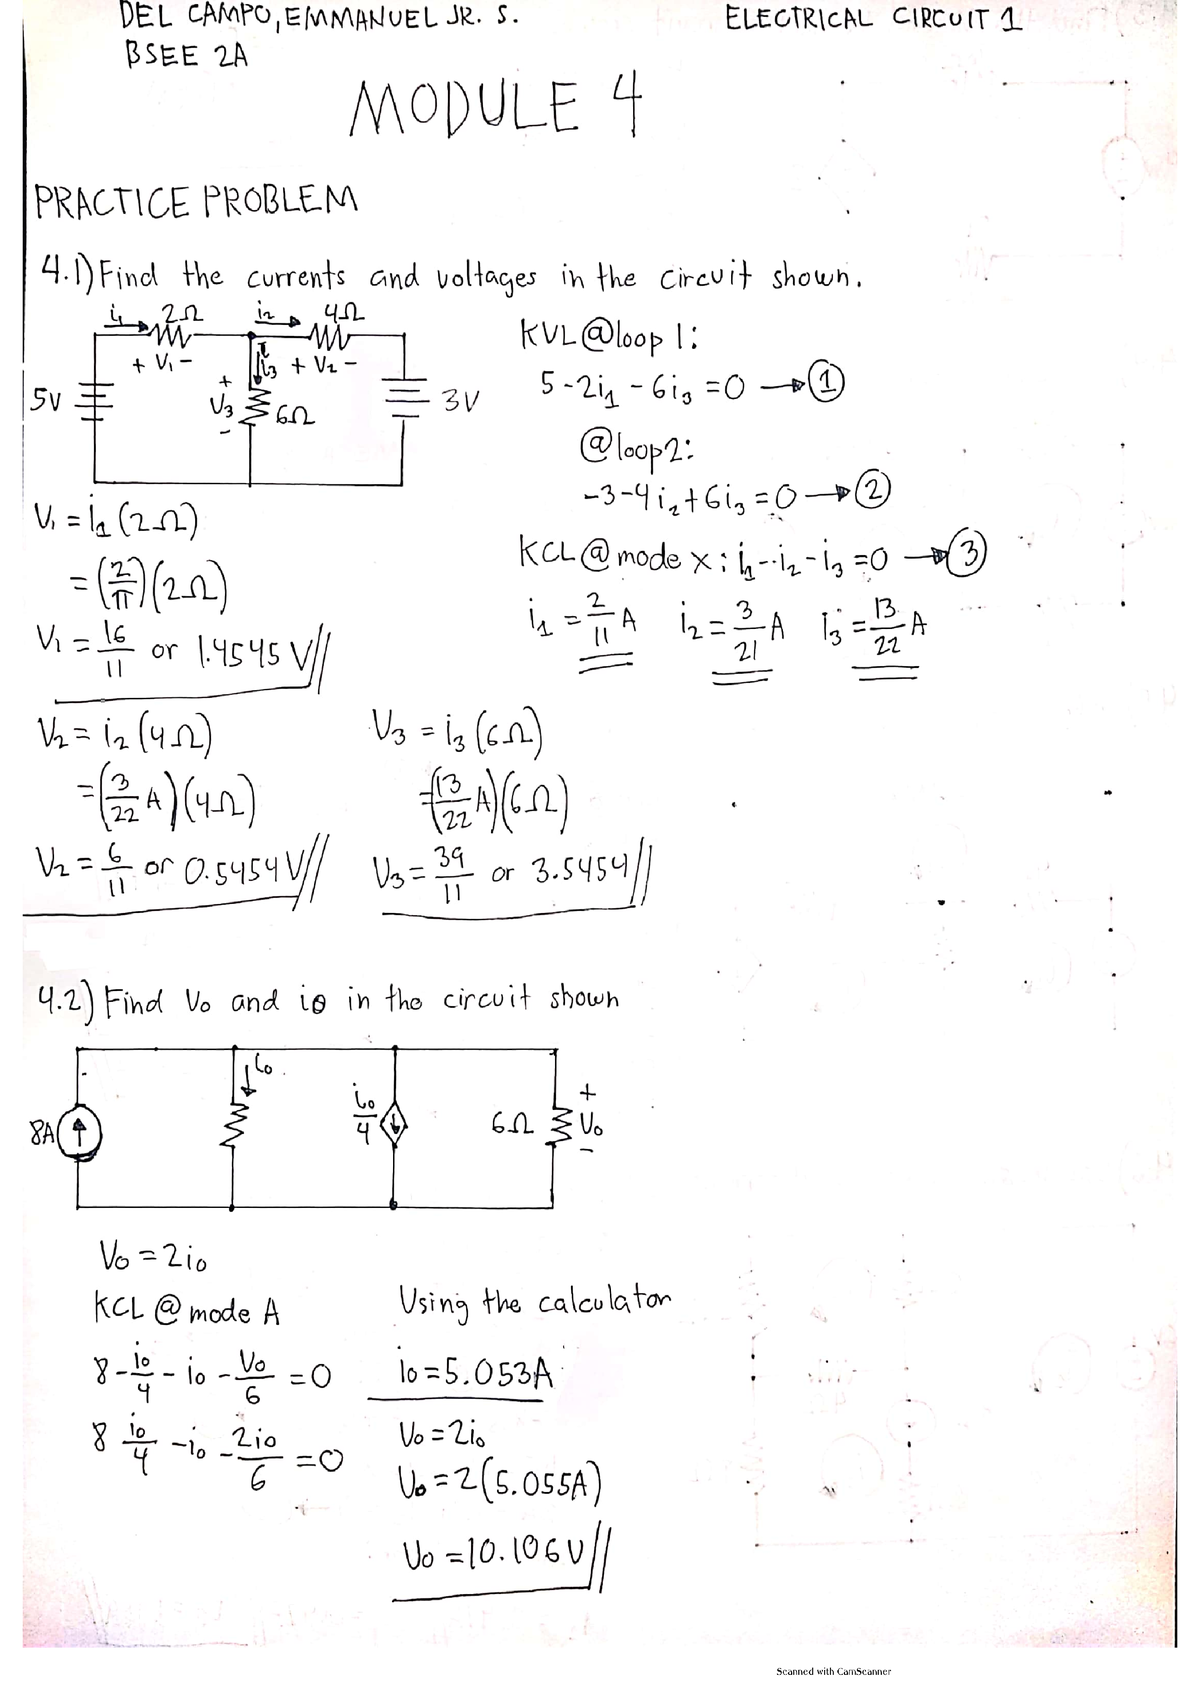 DEL CAMPO, EMMANUEL JR. S.
ELECTRICAL CIRCUIT 1
BSEE 2A
MODULE 4
PRACTICE PROBLEM
4.1) Find the currents and voltages in the circuit shown.
i₁ 2Ω i₂ 4Ω
+ V₁ - i₃ + V₂ -
5V + V₃ - 6Ω 3V
KVL@loop 1:
5-2i₁-6i₃=0 → ①
@loop2:
-3-4i₂+6i₃=0 → ②
KCL@mode x: i₁--i₂-i₃=0 → ③
i₁ = 2/11 A i₂ = 3/21 A i₃ = 13/22 A
V₁ = i₁(2Ω)
= (2/π)(2Ω)
V₁ = 16/11 or 1.4545 V//
V₂ = i₂(4Ω)
= (3/22 A)(4Ω)
V₂ = 6/11 or 0.5454V//
V₃ = i₃(6Ω)
= (13/22 A)(6Ω)
V₃ = 39/11 or 3.5454//
4.2) Find Vo and io in the circuit shown
8A io io/4 6Ω + Vo -
Vo = 2io
KCL @ mode A
8 - io/4 - io - Vo/6 = 0
8 io/4 - io - 2io/6 = 0
Using the calculator
io = 5.053A
Vo = 2io
Vo = 2(5.055A)
Vo = 10.106V//
Scanned with CamScanner